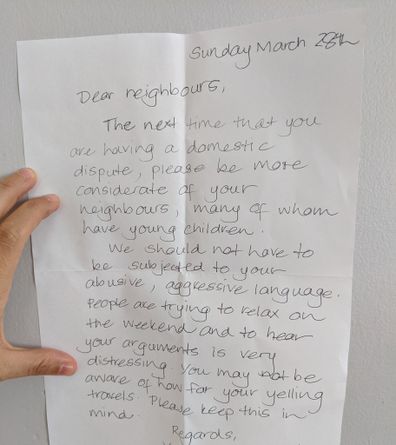 Sunday March 28th
Dear neighbours,
The next time that you
are having a domestic
dispute, please be more
considerate of your
neighbours, many of whom
have young children.
We should not have to
be subjected to your
abusive, aggressive language.
People are trying to relax on
the weekend and to hear
your arguments is very
distressing. You may not be
aware of how far your yelling
travels. Please keep this in
mind.
Regards,